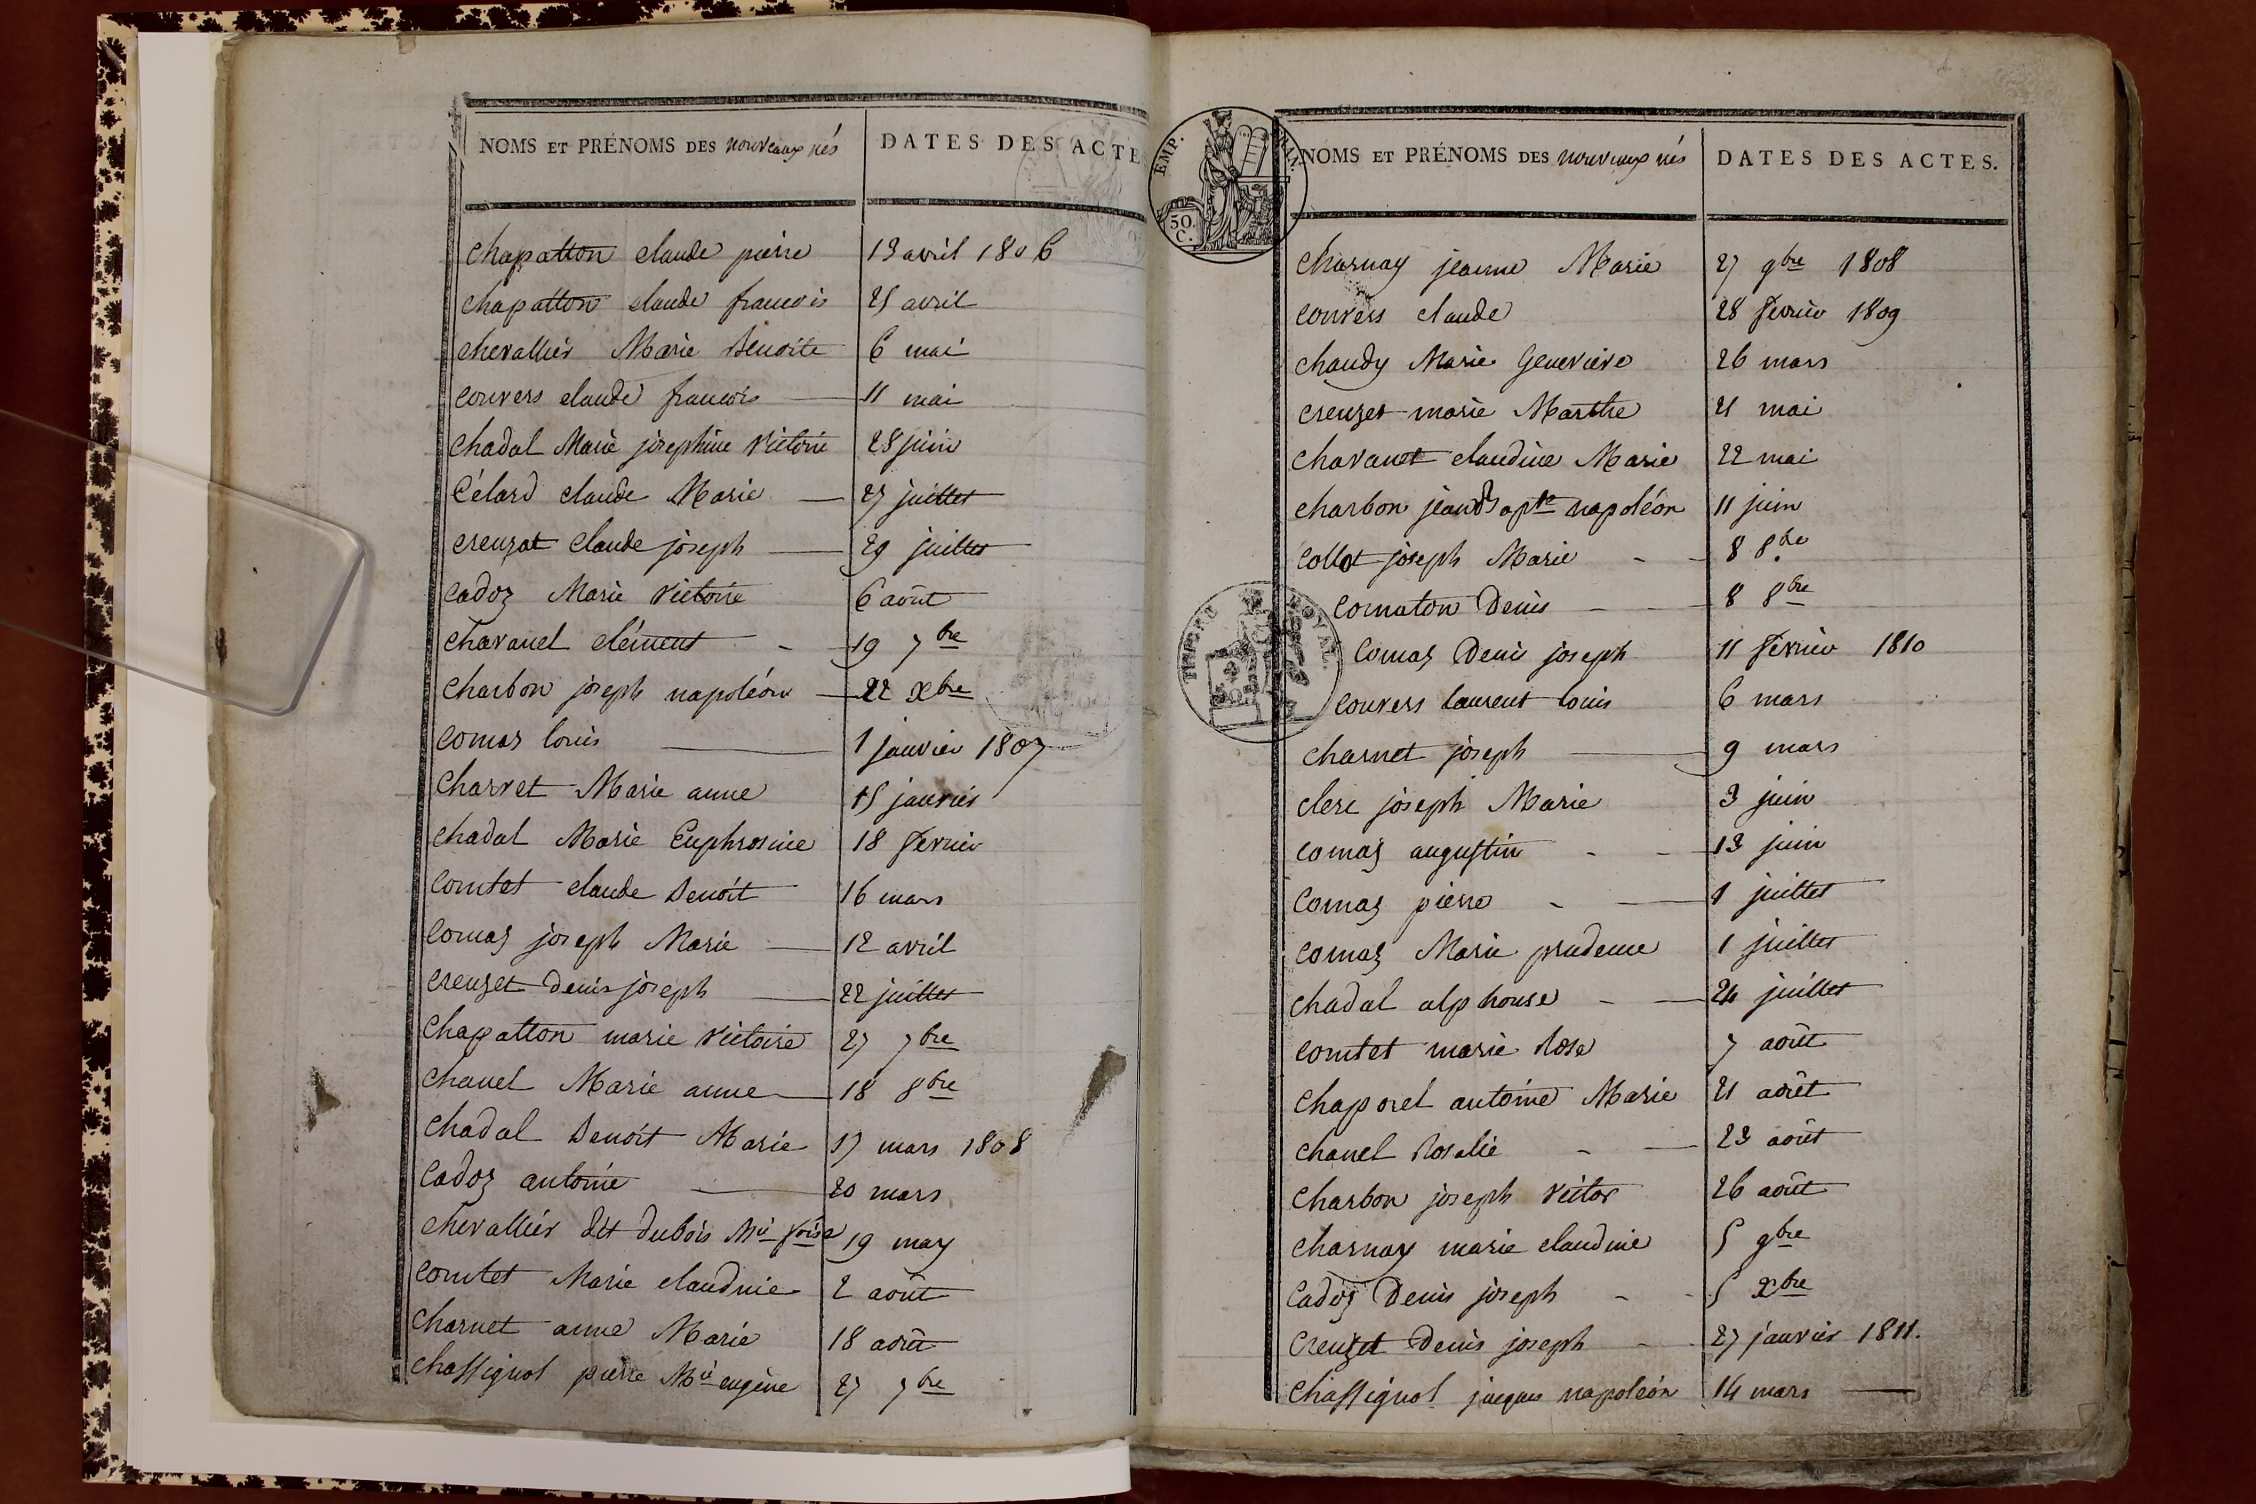 NOMS ET PRÉNOMS DES nouveaux nés DATES DES ACTE
chapatton claude pierre 13 avril 1806
chapatton claude francois 25 avril
chevallier Marie Benoite 6 mai
convers claude francois 11 mai
chadal Marie josephine victoire 28 juin
Célard claude Marie 27 juillet
creuzat claude joseph 29 juillet
cadoz Marie victoire 6 août
chavanel clément 19 7bre
charbon joseph napoléon 22 xbre
comaz louis 1 janvier 1807
charvet Marie anne 15 janvier
chadal Marie Euphrosine 18 fevrier
comtet claude Benoît 16 mars
comaz joseph Marie 12 avril
creuzet denis joseph 22 juillet
chapatton marie victoire 27 7bre
chanel Marie anne 18 8bre
chadal Benoît Marie 17 mars 1808
cadoz antoine 20 mars
chevallier dit dubois Mie foise 19 may
comtet Marie claudine 2 août
charnet anne Marie 18 août
chassignol pierre Mie eugène 27 7bre
EMP.
50.
C.
NOMS ET PRÉNOMS DES nouveaux nés DATES DES ACTES.
charnay jeanne Marie 27 9bre 1808
convers claude 28 fevrier 1809
chaudy Marie Genevieve 26 mars
creuzet marie Marthe 21 mai
chavanet claudine Marie 22 mai
charbon jean Bapte napoléon 11 juin
collot joseph Marie 8 8bre
comaton Denis 8 8bre
TIMBRE ROYAL
comaz Denis joseph 11 fevrier 1810
convers laurent louis 6 mars
charnet joseph 9 mars
clerc joseph Marie 3 juin
comaz augustin 13 juin
comaz pierre 1 juillet
comaz Marie prudence 1 juillet
chadal alphonse 24 juillet
comtet marie Rose 7 août
chaporel antoine Marie 21 août
chanel Rosalie 23 août
charbon joseph victor 26 août
charnay marie claudine 5 9bre
cadoz Denis joseph 5 xbre
creuzet Denis joseph 27 janvier 1811.
chassignol jacques napoléon 14 mars